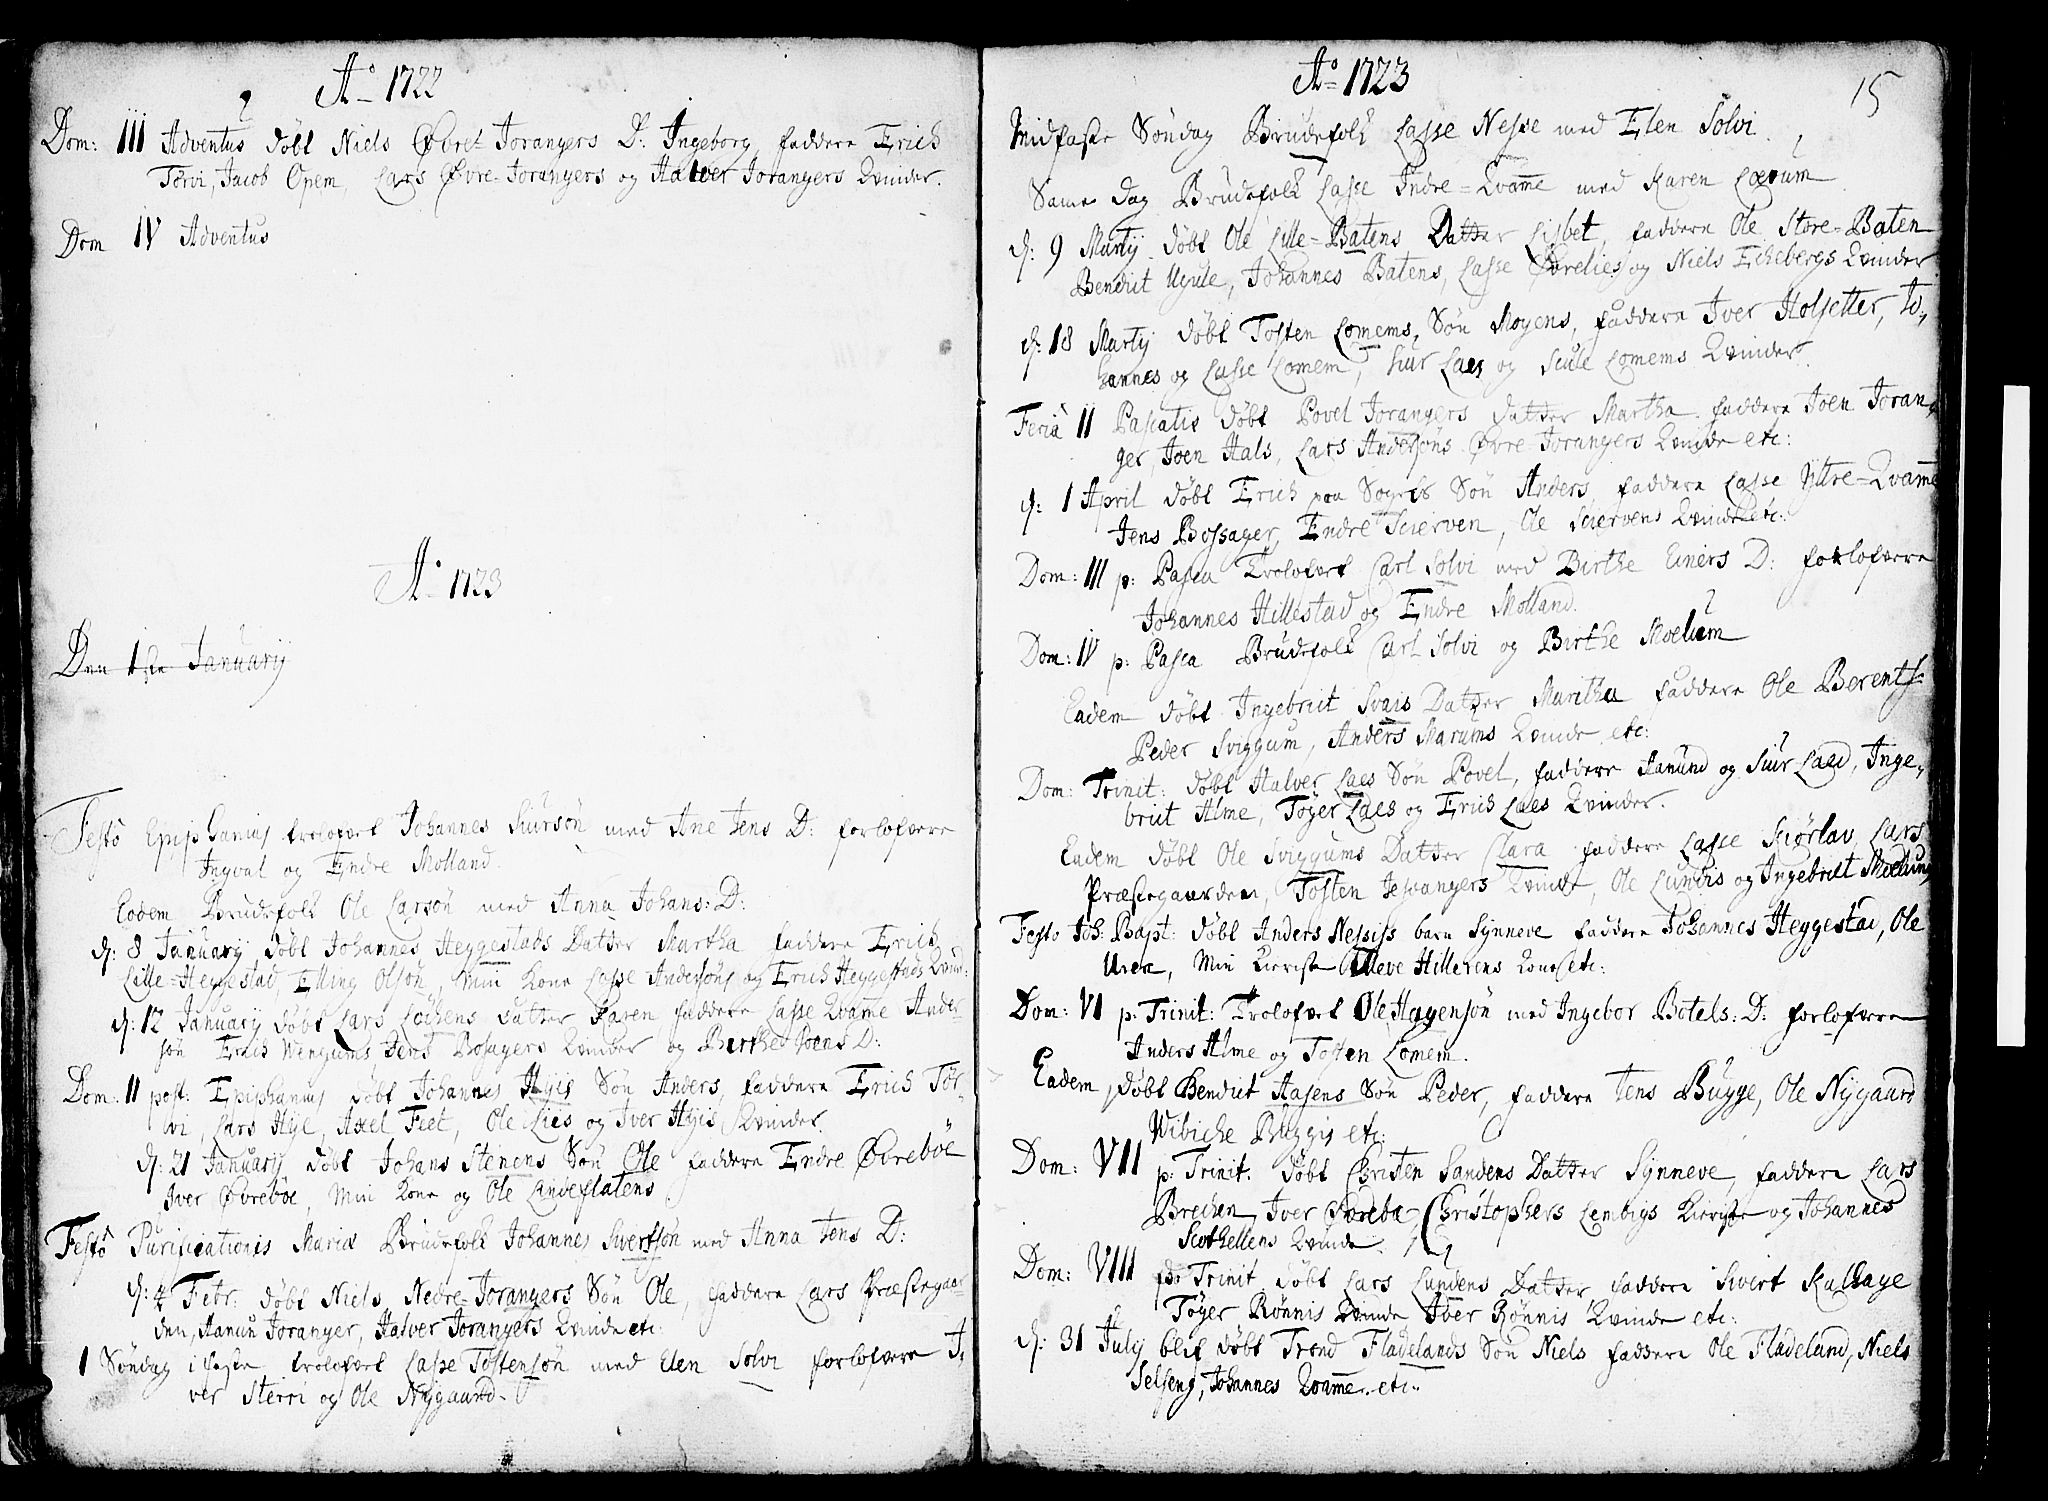 Ao 1722
Dom: III Adventus döbt Niels Øvret Joranger D: Ingeborg, faddere Erich
Törvi, Jacob Opem, Lars Øvre-Jorangers og Halver Jorangers Qvinder.
Dom IV Adventus
Ao 1723
Den 1ste Januarij
Festo Epiphanias trolofvet Johannes Siursön med Ane Jens D: forlofvere
Ingval og Endre Molland
Eodem Brudefolk Ole Larsön med Anna Johans: D:
d: 8 Januarij döbt Johannes Heggestads Datter Martha faddere Erich
Lille-Heggestad, Elling Olsön, Min Kone Lasse Andersöns og Erich Heggestads Qvin:
d: 12 Januarij döbt Lars Löchens datter Karen faddere Lasse Qvame Ander-
sön Erich Wengums, Jens Bosagers Qvinder og Berthe Joens D:
Dom: II post: Epiphanias döbt Johannes Hÿis Sön Anders, faddere Erich Tör-
vi, Lars Hÿe, Axel Feet, Ole Lies og Iver Hÿis Qvinder.
d: 21 Januarij döbt Johans Stenens Sön Ole faddere Endre Øvreböe
Iver Øvreböe, Min Kone og Ole Landeflatens
Festo Purificationis Mariæ Brudefolk Johannes Sivertsön med Anna Jens D:
d: 4 Febr: döbt Niels Nedre-Jorangers Sön Ole, faddere Lars Præstegaar-
den, Aamun Joranger, Halver Jorangers Qvinde etc:
1 Söndag i faste trolofvet Lasse Tostensön med Elen Solvi forlofvere I-
ver Sterri og Ole Nÿgaard.
Ao 1723
15
Midfaste Söndag Brudefolk Lasse Nesse med Elen Solvi
Same Dag Brudefolk Lasse Indre=Qvame med Karen Loeum
d: 9 Martij döbt Ole Lille-Batens Datter Lisbet, faddere Ole Store-Baten
Bendict Ugule, Johannes Batens, Lasse Øvrelies og Niels Echebergs Qvinder
d: 18 Martij döbt Tosten Lomems, Sön Mogens, faddere Iver Holsetter, Jo-
hannes og Lasse Lomem, Siur Laes og Scule Lomems Qvinder.
Feria II Pascatis döbt Povel Jorangers datter Martha faddere Joen Joran-
ger, Joen Hals, Lars Andersöns Øvre Jorangers Qvinde etc:
d: 1 April döbt Erich paa Sogrets Sön Anders faddere Lasse Yttre-Qvame
Jens Bossager, Endre Scierven, Ole Sciervens Qvinde etc:
Dom: III p: Pasca Trolofvet Carl Solvi med Birthe Einers D: forlofvere
Johannes Hillestad og Endre Molland.
Dom: IV p: Pasca Brudefolk Carl Solvi og Birthe Moelum
Eadem döbt Ingebrict Svais Datter Maritha faddere Ole Berents.
Peder Sviggum, Anders Marums Qvinde etc:
Dom: Trinit: döbt Halver Laes Sön Povel, faddere Aamund og Siur Laed, Inge-
brict Alme, Töger Laes og Erich Laes Qvinder.
Eadem döbt Ole Sviggums Datter Clara faddere Lasse Kiörlav, Lars
Præstegaarden, Tosten Jesvangers Qvinde, Ole Lundis og Ingebrict Moelums
Festo Joh: Bapt: döbt Anders Nessiss barn Synneve faddere Johannes Heggestad, Ole
Urea, Min Kieriste Cleve Hillerens Kone etc:
Dom: VI p: Trinit: Trolofvet Ole Hagensön med Ingebor Botels: D: forlofvere
Anders Alme og Tosten Lomem.
Eadem döbt Bendict Aasens Sön Peder, faddere Jens Bugge, Ole Nÿgaard
Wibiche Buggis etc:
Dom: VII p: Trinit. döbt Christen Sandens Datter Synneve, faddere Lars
Brechen Iver Øvrebø, Christophers Lembigs Kieriste og Johannes
Scothellens Qvinde.
Dom: VIII p: Trinit döbt Lars Lundens Datter faddere Sivert Kalhage
Töger Rönnis Qvinde Iver Rönnis Qvinde etc:
d: 31 July blef döbt Trond Fladelands Sön Niels faddere Ole Fladeland, Niels
Selseng, Johannes Qvame. etc: